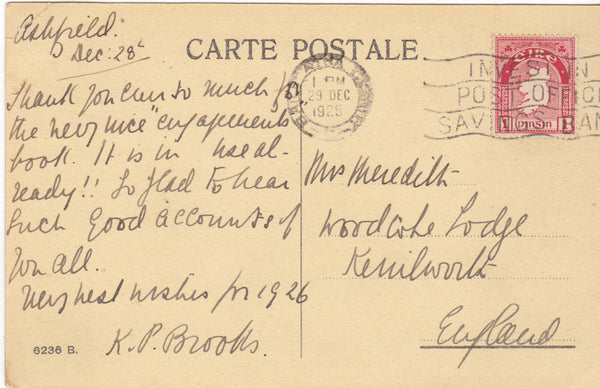 Ashfield.
Dec. 28th
CARTE POSTALE.
Thank you ever so much for
the very nice "engagements"
book. It is in use al-
ready!! So glad to hear
such good accounts of
you all.
Very best wishes for 1926
K. P. Brooks.
6236 B.
1 PM
29 DEC
1925
INVEST IN
POST OFFICE
SAVINGS BANK
éire
1 pinsin 1
Mrs Meredith
Woodcote Lodge
Kenilworth
England